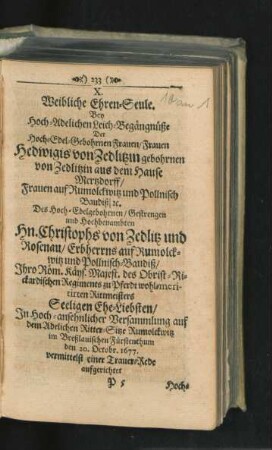 ) 233 (
X.
Weibliche Ehren-Seule.
Bey
Hoch-Adelichen Leich-Begängnüße
Der
Hoch-Edel-Gebohrnen Frauen/ Frauen
Hedwigis von Zedlitzin gebohrnen
von Zedlitzin aus dem Hause
Mertzdorff/
Frauen auf Rumolckwitz und Pollnisch
Baudiß/ ꝛc.
Des Hoch-Edelgebohrnen/ Gestrengen
und Hochbenambten
Hn. Christophs von Zedlitz und
Rosenau/ Erbherrns auf Rumolck-
witz und Pollnisch-Baudiß/
Ihro Röm. Käys. Majest. des Obrist-Ri-
ckardischen Regiments zu Pferdt wohlmeri-
tirten Rittmeisters
Seeligen Ehe-Liebsten/
In Hoch-ansehnlicher Versammlung auf
dem Adelichen Ritter-Sitze Rumolckwitz
im Breßlauischen Fürstenthum
den 20. Octobr. 1677.
vermittelst einer Trauer-Rede
aufgerichtet
P 5 Hoch-